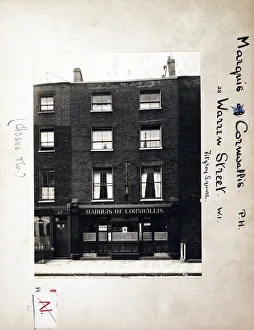 Marquis of Cornwallis. P.H.
28 Warren Street. W.1.
Fitzroy Square.
MARQUIS OF CORNWALLIS
27
N
H